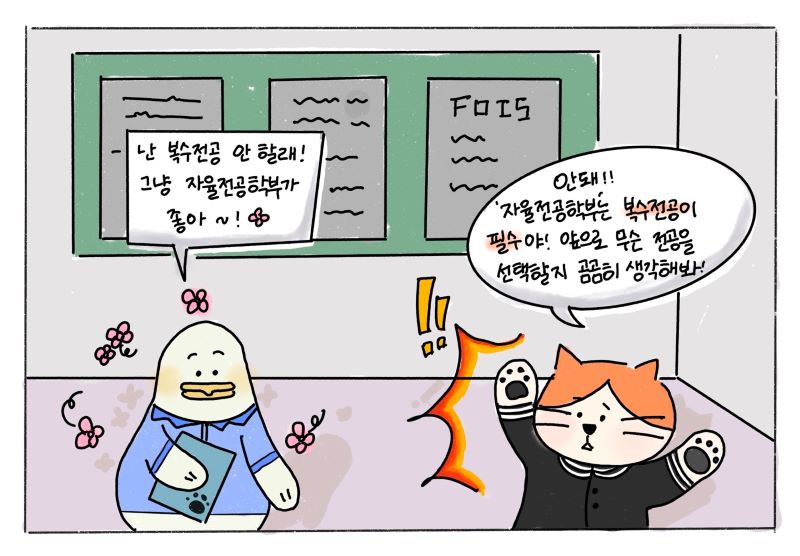 FOIS
난 복수전공 안 할래!
그냥 자율전공학부가
좋아 ~!
안돼!!
'자율전공학부'는 복수전공이
필수야! 앞으로 무슨 전공을
선택할지 곰곰히 생각해봐!